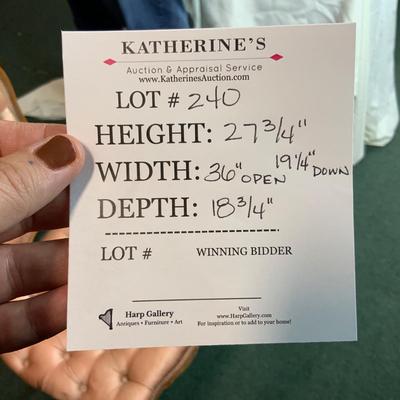 KATHERINE'S
Auction & Appraisal Service
www.KatherinesAuction.com
LOT # 240
HEIGHT: 27 3/4"
WIDTH: 36" OPEN 19 1/4" DOWN
DEPTH: 18 3/4"
LOT # WINNING BIDDER
Harp Gallery
Antiques • Furniture • Art
Visit
www.HarpGallery.com
For inspiration or to add to your home!